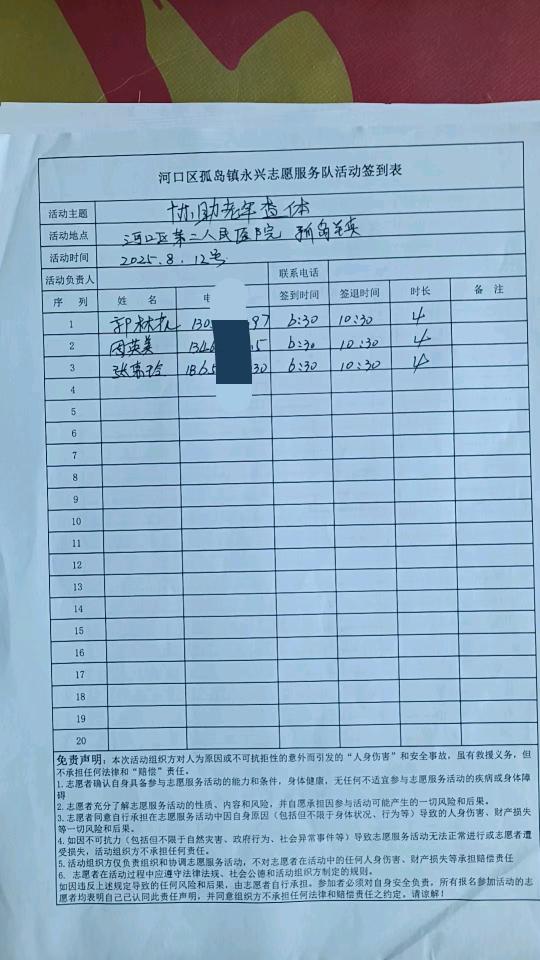 河口区孤岛镇永兴志愿服务队活动签到表
活动主题 协助老年查体
活动地点 河口区第二人民医院 孤岛
活动时间 2025.8.12号
活动负责人 联系电话
序 列 姓 名 电 签到时间 签退时间 时长 备 注
1 郭 130 97 6:30 10:30 4
2 周英美 1346 5 6:30 10:30 4
3 张 1865 30 6:30 10:30 4
4
5
6
7
8
9
10
11
12
13
14
15
16
17
18
19
20
免责声明：本次活动组织方对人为原因或不可抗拒性的意外而引发的“人身伤害”和安全事故，虽有救援义务，但
不承担任何法律和“赔偿”责任。
1.志愿者确认自身具备参与志愿服务活动的能力和条件，身体健康，无任何不适宜参与志愿服务活动的疾病或身体障
碍
2.志愿者充分了解志愿服务活动的性质、内容和风险，并自愿承担因参与活动可能产生的一切风险和后果。
3.志愿者同意自行承担在志愿服务活动中因自身原因（包括但不限于身体状况、行为等）导致的人身伤害、财产损失
等一切风险和后果。
4.如因不可抗力（包括但不限于自然灾害、政府行为、社会异常事件等）导致志愿服务活动无法正常进行或志愿者遭
受损失，活动组织方不承担任何责任。
5.活动组织方仅负责组织和协调志愿服务活动，不对志愿者在活动中的任何人身伤害、财产损失等承担赔偿责任
6. 志愿者在活动过程中应遵守法律法规、社会公德和活动组织方制定的规则。
如因违反上述规定导致的任何风险和后果，由志愿者自行承担。参加者必须对自身安全负责，所有报名参加活动的志
愿者均表明自己已认同此责任声明，并同意组织方不承担任何法律和赔偿责任之约定。请谅解！